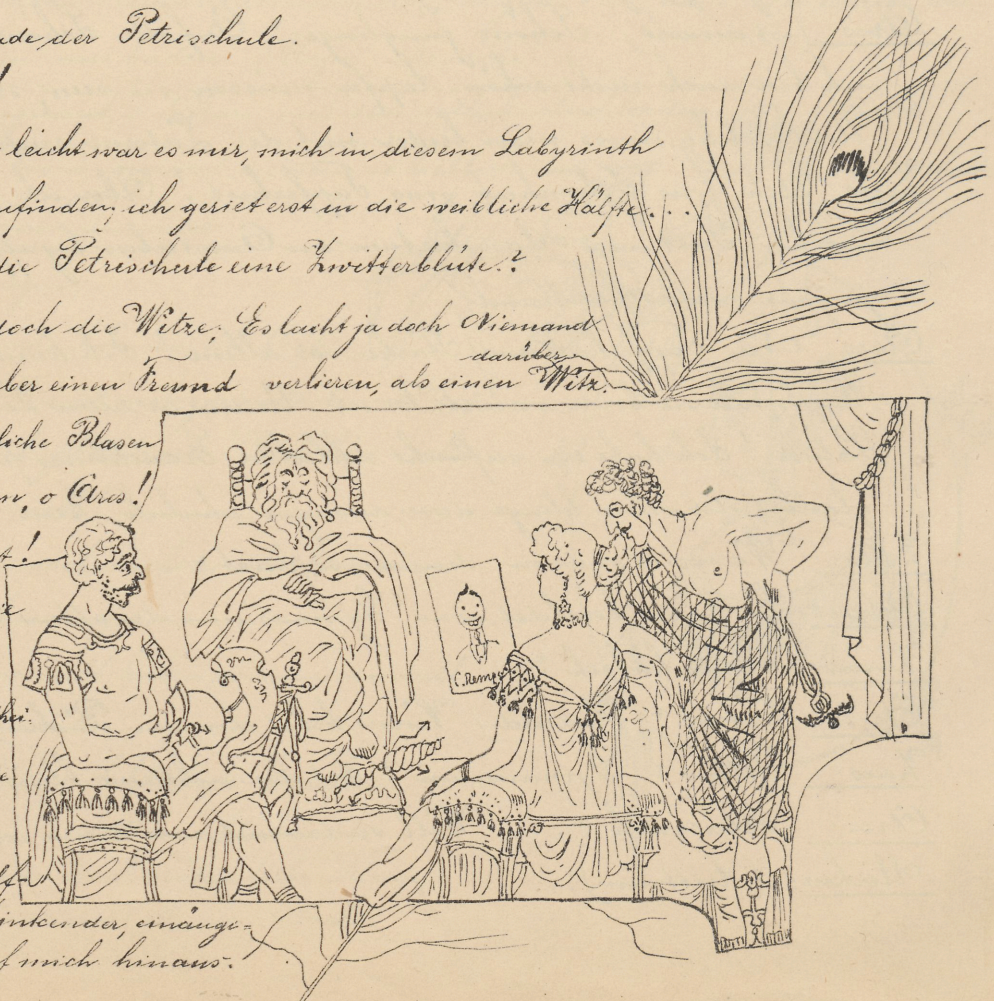 de der Petrischule.
!
leicht war es mir, mich in diesem Labyrinth
finden; ich geriet erst in die weibliche Hälfte...
die Petrischule eine Zwitterblüte.?
doch die Witze; Es lacht ja doch Niemand
darüber
ber einen Freund verlieren, als einen Witz.
liche Blasen
n, o Ares!
t!
C. Remp
hei.
inkender, einäugi=
f mich hinaus.